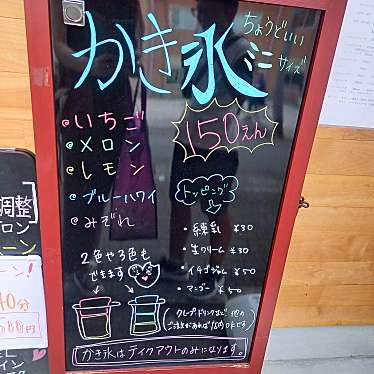 かき氷
ちょうどいい
ミニサイズ
@いちご
@メロン
@レモン
@ブルーハワイ
@みぞれ
150えん
トッピング
・練乳 ¥30
・生クリーム ¥30
・イチゴジャム ¥50
・マンゴー ¥50
2色や3色も
できます
クレープ、ドリンクなど、他の
ご注文があれば店内OKです
かき氷はテイクアウトのみになります。
調整
ロン
ーン
ーン!
40分
500円